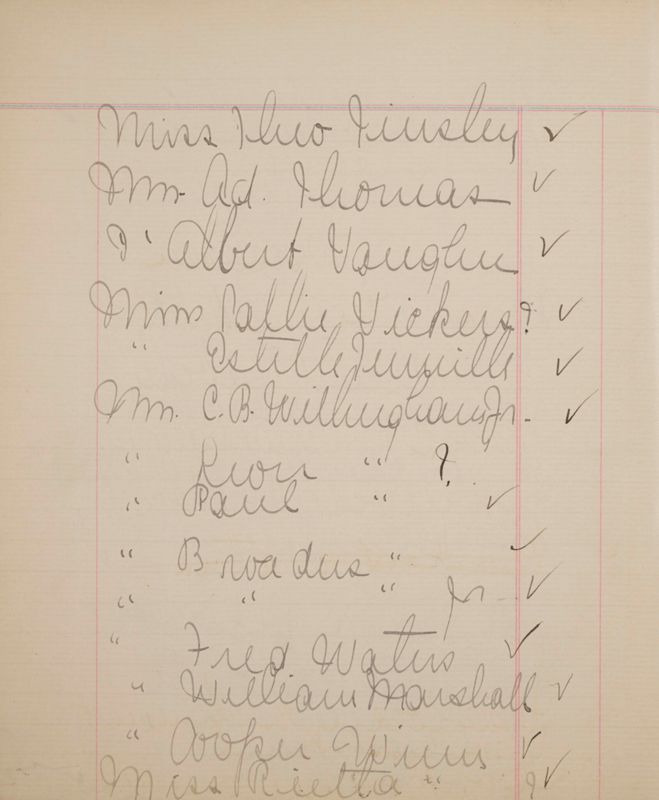 Miss Theo Tinsley ✓
Mr. Ad. Thomas ✓
D' Albert Vaughn ✓
Miss Sallie Vickers? ✓
" Estelle Turville ✓
Mr. C. B. Willingham Jr. ✓
" " ?
" Paul " ✓
" Broadus " ✓
" " " Jr. ✓
" Fred Waters ✓
" William Marshall ✓
" Cooper Winn ✓
Miss Rietta " ? ✓